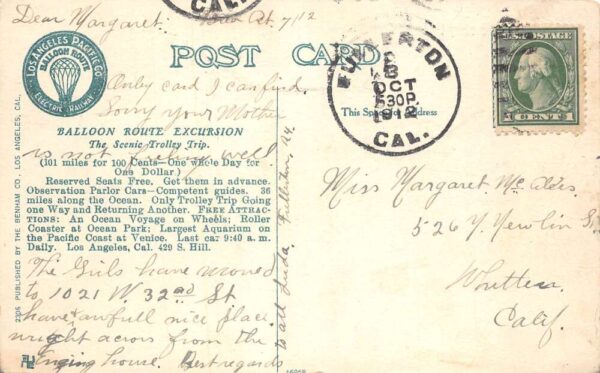 Dear Margaret.
CAL.
LOS ANGELES PACIFIC CO.
BALLOON ROUTE
ELECTRIC RAILWAY
POST CARD
Only card I can find.
Sorry your Mother
is not feeling well.
BALLOON ROUTE EXCURSION
The Scenic Trolley Trip.
(101 miles for 100 Cents—One Whole Day for
One Dollar)
Reserved Seats Free. Get them in advance.
Observation Parlor Cars—Competent guides. 36
miles along the Ocean. Only Trolley Trip Going
one Way and Returning Another. FREE ATTRAC-
TIONS: An Ocean Voyage on Wheels; Roller
Coaster at Ocean Park; Largest Aquarium on
the Pacific Coast at Venice. Last car 9:40 a. m.
Daily. Los Angeles, Cal. 429 S. Hill.
The Girls have moved
to 1021 W. 32nd St
have awfull nice place
wright across from the
Enging house. Best regards
to all
2306 PUBLISHED BY THE BENHAM CO., LOS ANGELES, CAL.
FULLERTON
OCT
8
530P.
1912
CAL.
This Space for Address
U.S. POSTAGE
1 CENT 1
Miss Margaret
526
Whittier
Calif.